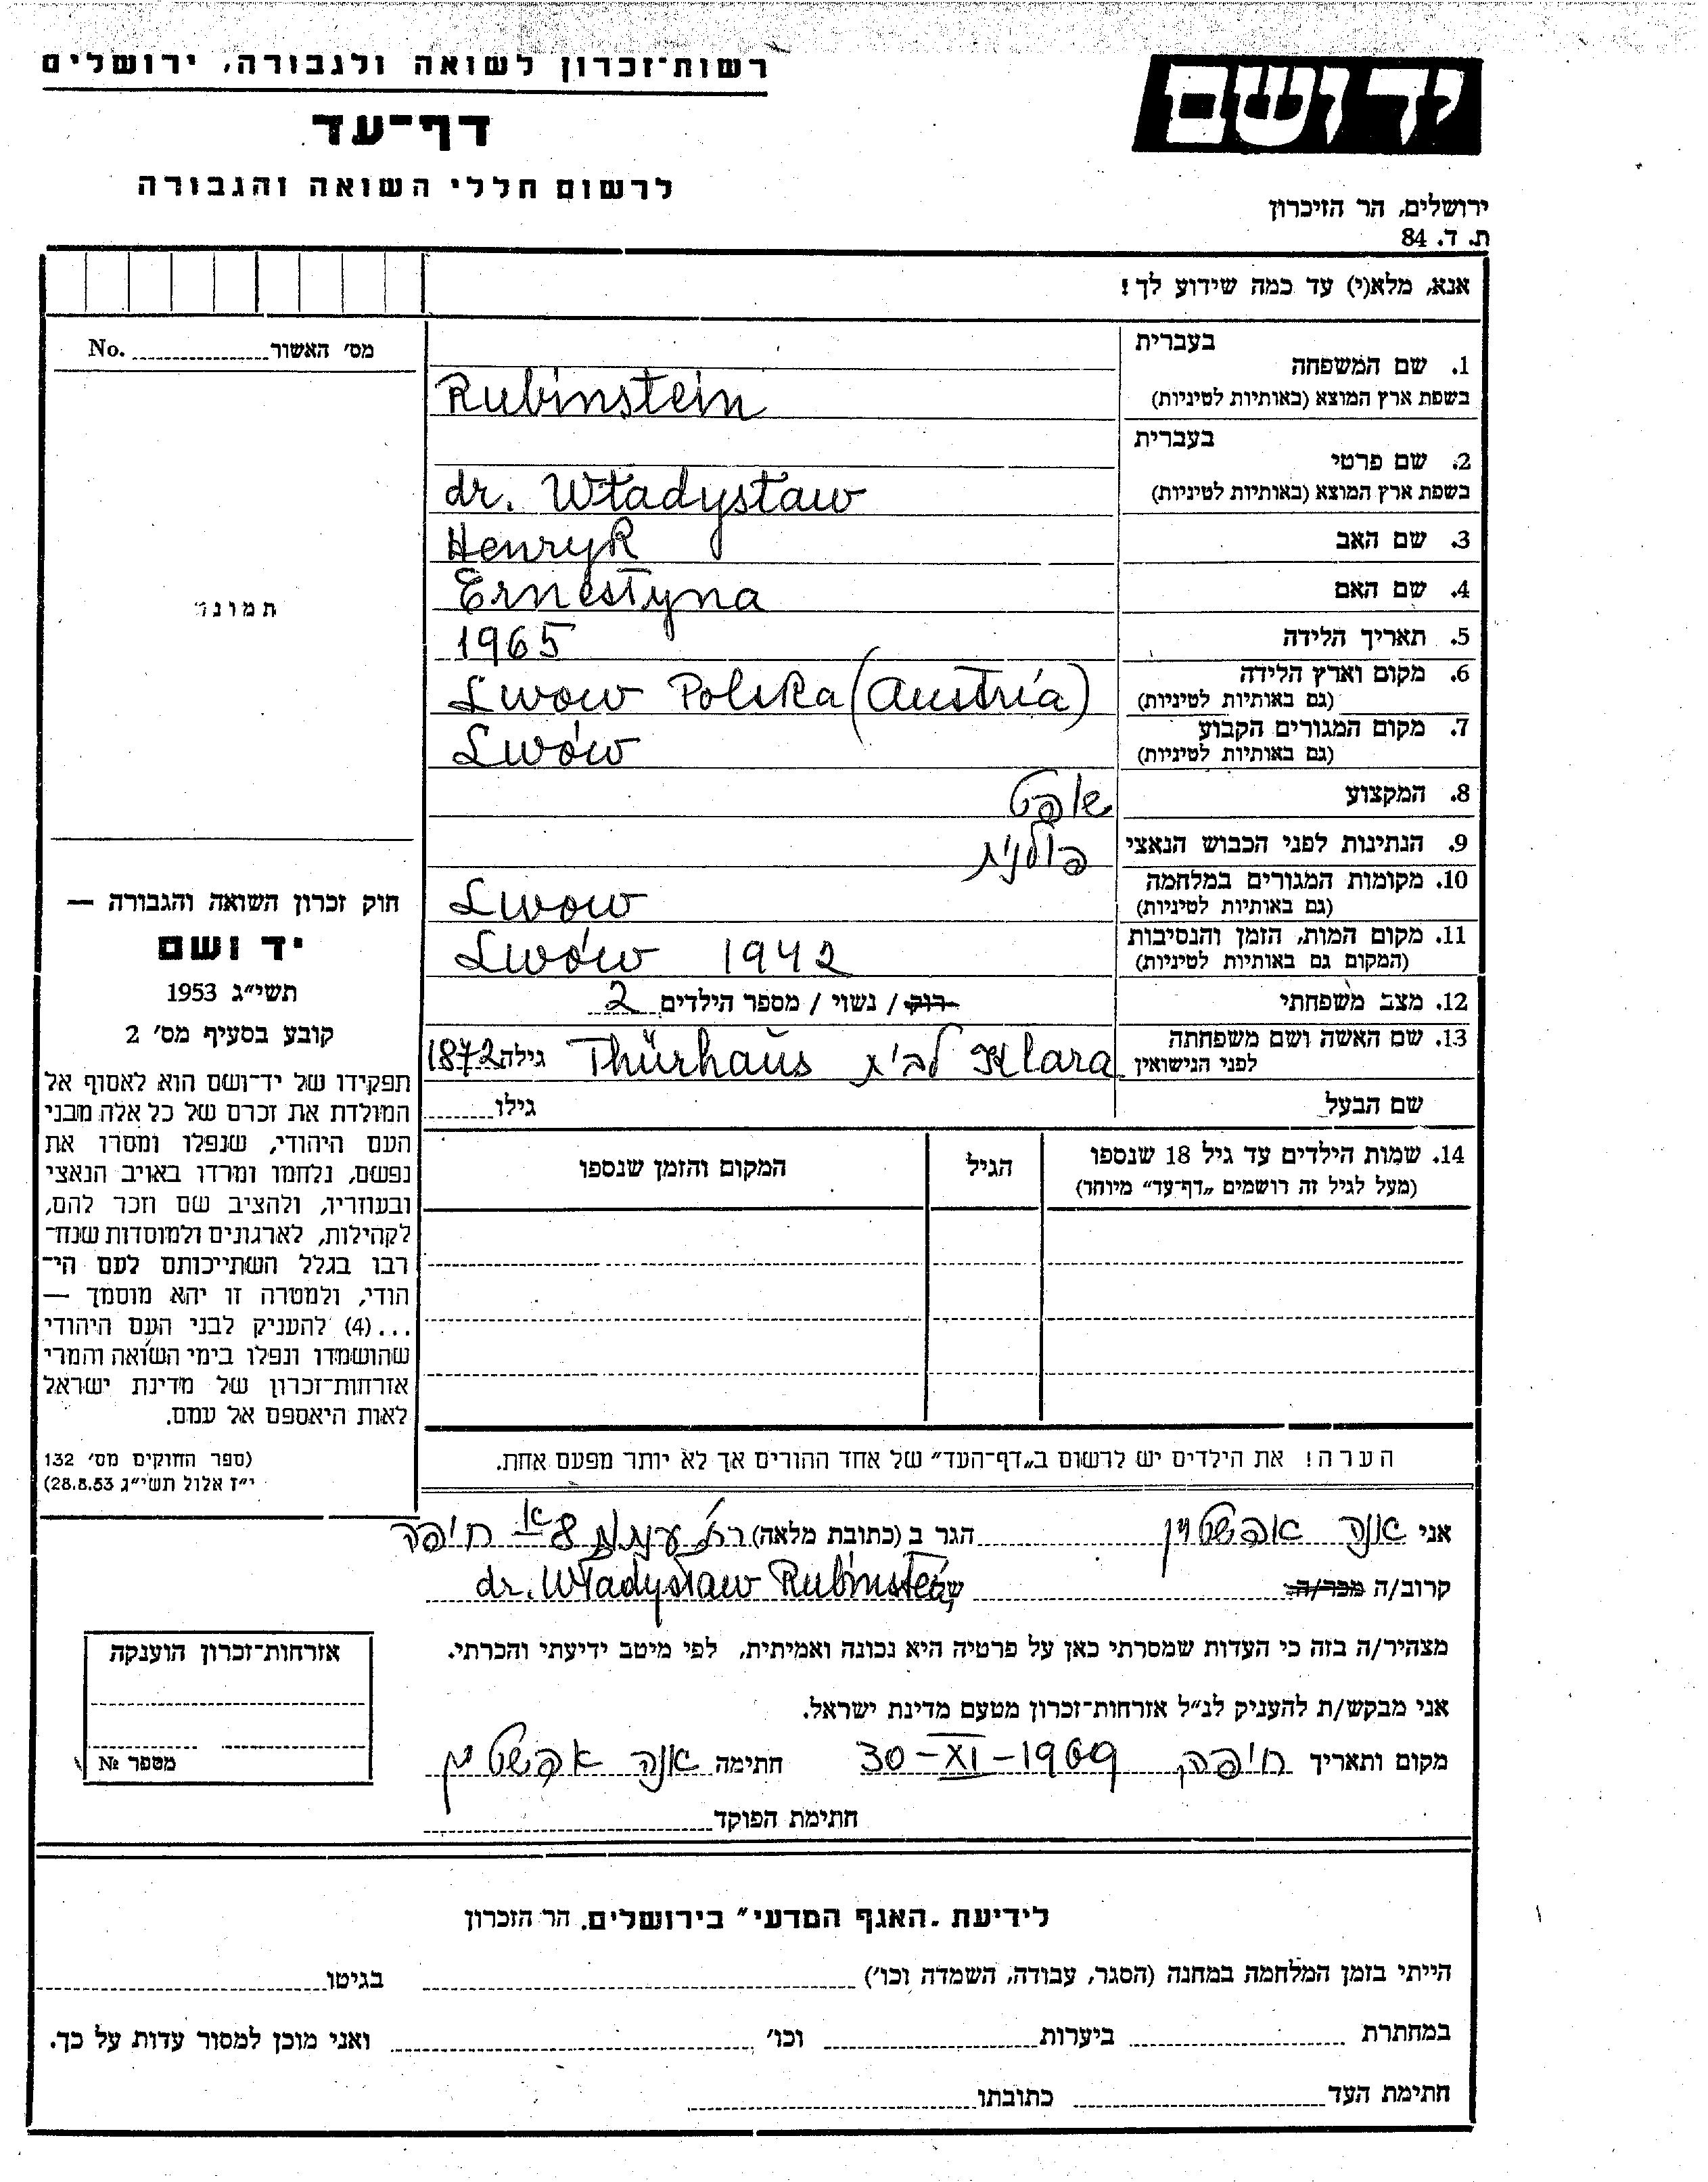 רשות־זכרון לשואה ולגבורה, ירושלים
דף־עד
לרשום חללי השואה והגבורה
יד ושם
ירושלים, הר הזיכרון
ת. ד. 84
אנא, מלא(י) עד כמה שידוע לך!
בעברית
1. שם המשפחה
בשפת ארץ המוצא (באותיות לטיניות) Rubinstein
בעברית
2. שם פרטי
בשפת ארץ המוצא (באותיות לטיניות) dr. Władysław
3. שם האב Henryk
4. שם האם Ernestyna
5. תאריך הלידה 1965
6. מקום וארץ הלידה Lwow Polska (Austria)
(גם באותיות לטיניות)
7. מקום המגורים הקבוע Lwów
(גם באותיות לטיניות)
8. המקצוע שופט
9. הנתינות לפני הכבוש הנאצי פולנית
10. מקומות המגורים במלחמה Lwow
(גם באותיות לטיניות)
11. מקום המות, הזמן והנסיבות Lwów 1942
(המקום גם באותיות לטיניות)
12. מצב משפחתי רוק / נשוי / מספר הילדים 2
13. שם האשה ושם משפחתה
לפני הנישואין Klara לבית Thürhaus גילה 1872
שם הבעל גילו
14. שמות הילדים עד גיל 18 שנספו הגיל המקום והזמן שנספו
(מעל לגיל זה רושמים „דף־עד״ מיוחד)
הערה! את הילדים יש לרשום ב„דף־העד״ של אחד ההורים אך לא יותר מפעם אחת.
מס׳ האשור No.
תמונה
חוק זכרון השואה והגבורה —
יד ושם
תשי״ג 1953
קובע בסעיף מס׳ 2
תפקידו של יד־ושם הוא לאסוף אל
המולדת את זכרם של כל אלה מבני
העם היהודי, שנפלו ומסרו את
נפשם, נלחמו ומרדו באויב הנאצי
ובעוזריו, ולהציב שם וזכר להם,
לקהילות, לארגונים ולמוסדות שנח־
רבו בגלל השתייכותם לעם הי־
הודי, ולמטרה זו יהא מוסמך —
...(4) להעניק לבני העם היהודי
שהושמדו ונפלו בימי השואה והמרי
אזרחות־זכרון של מדינת ישראל
לאות היאספם אל עמם.
(ספר החוקים מס׳ 132
י״ז אלול תשי״ג 28.8.53)
אני אנה אפשטין הגר ב (כתובת מלאה) 8 חיפה
קרוב/ה מכר/ה של dr. Władysław Rubinstein
מצהיר/ה בזה כי העדות שמסרתי כאן על פרטיה היא נכונה ואמיתית, לפי מיטב ידיעתי והכרתי.
אני מבקש/ת להעניק לנ״ל אזרחות־זכרון מטעם מדינת ישראל.
מקום ותאריך חיפה 30-XI-1969 חתימה אנה אפשטין
חתימת הפוקד
אזרחות־זכרון הוענקה
מספר №
לידיעת „האגף המדעי״ בירושלים. הר הזכרון
הייתי בזמן המלחמה במחנה (הסגר, עבודה, השמדה וכו׳) בגיטו
במחתרת ביערות וכו׳ ואני מוכן למסור עדות על כך.
חתימת העד כתובתו